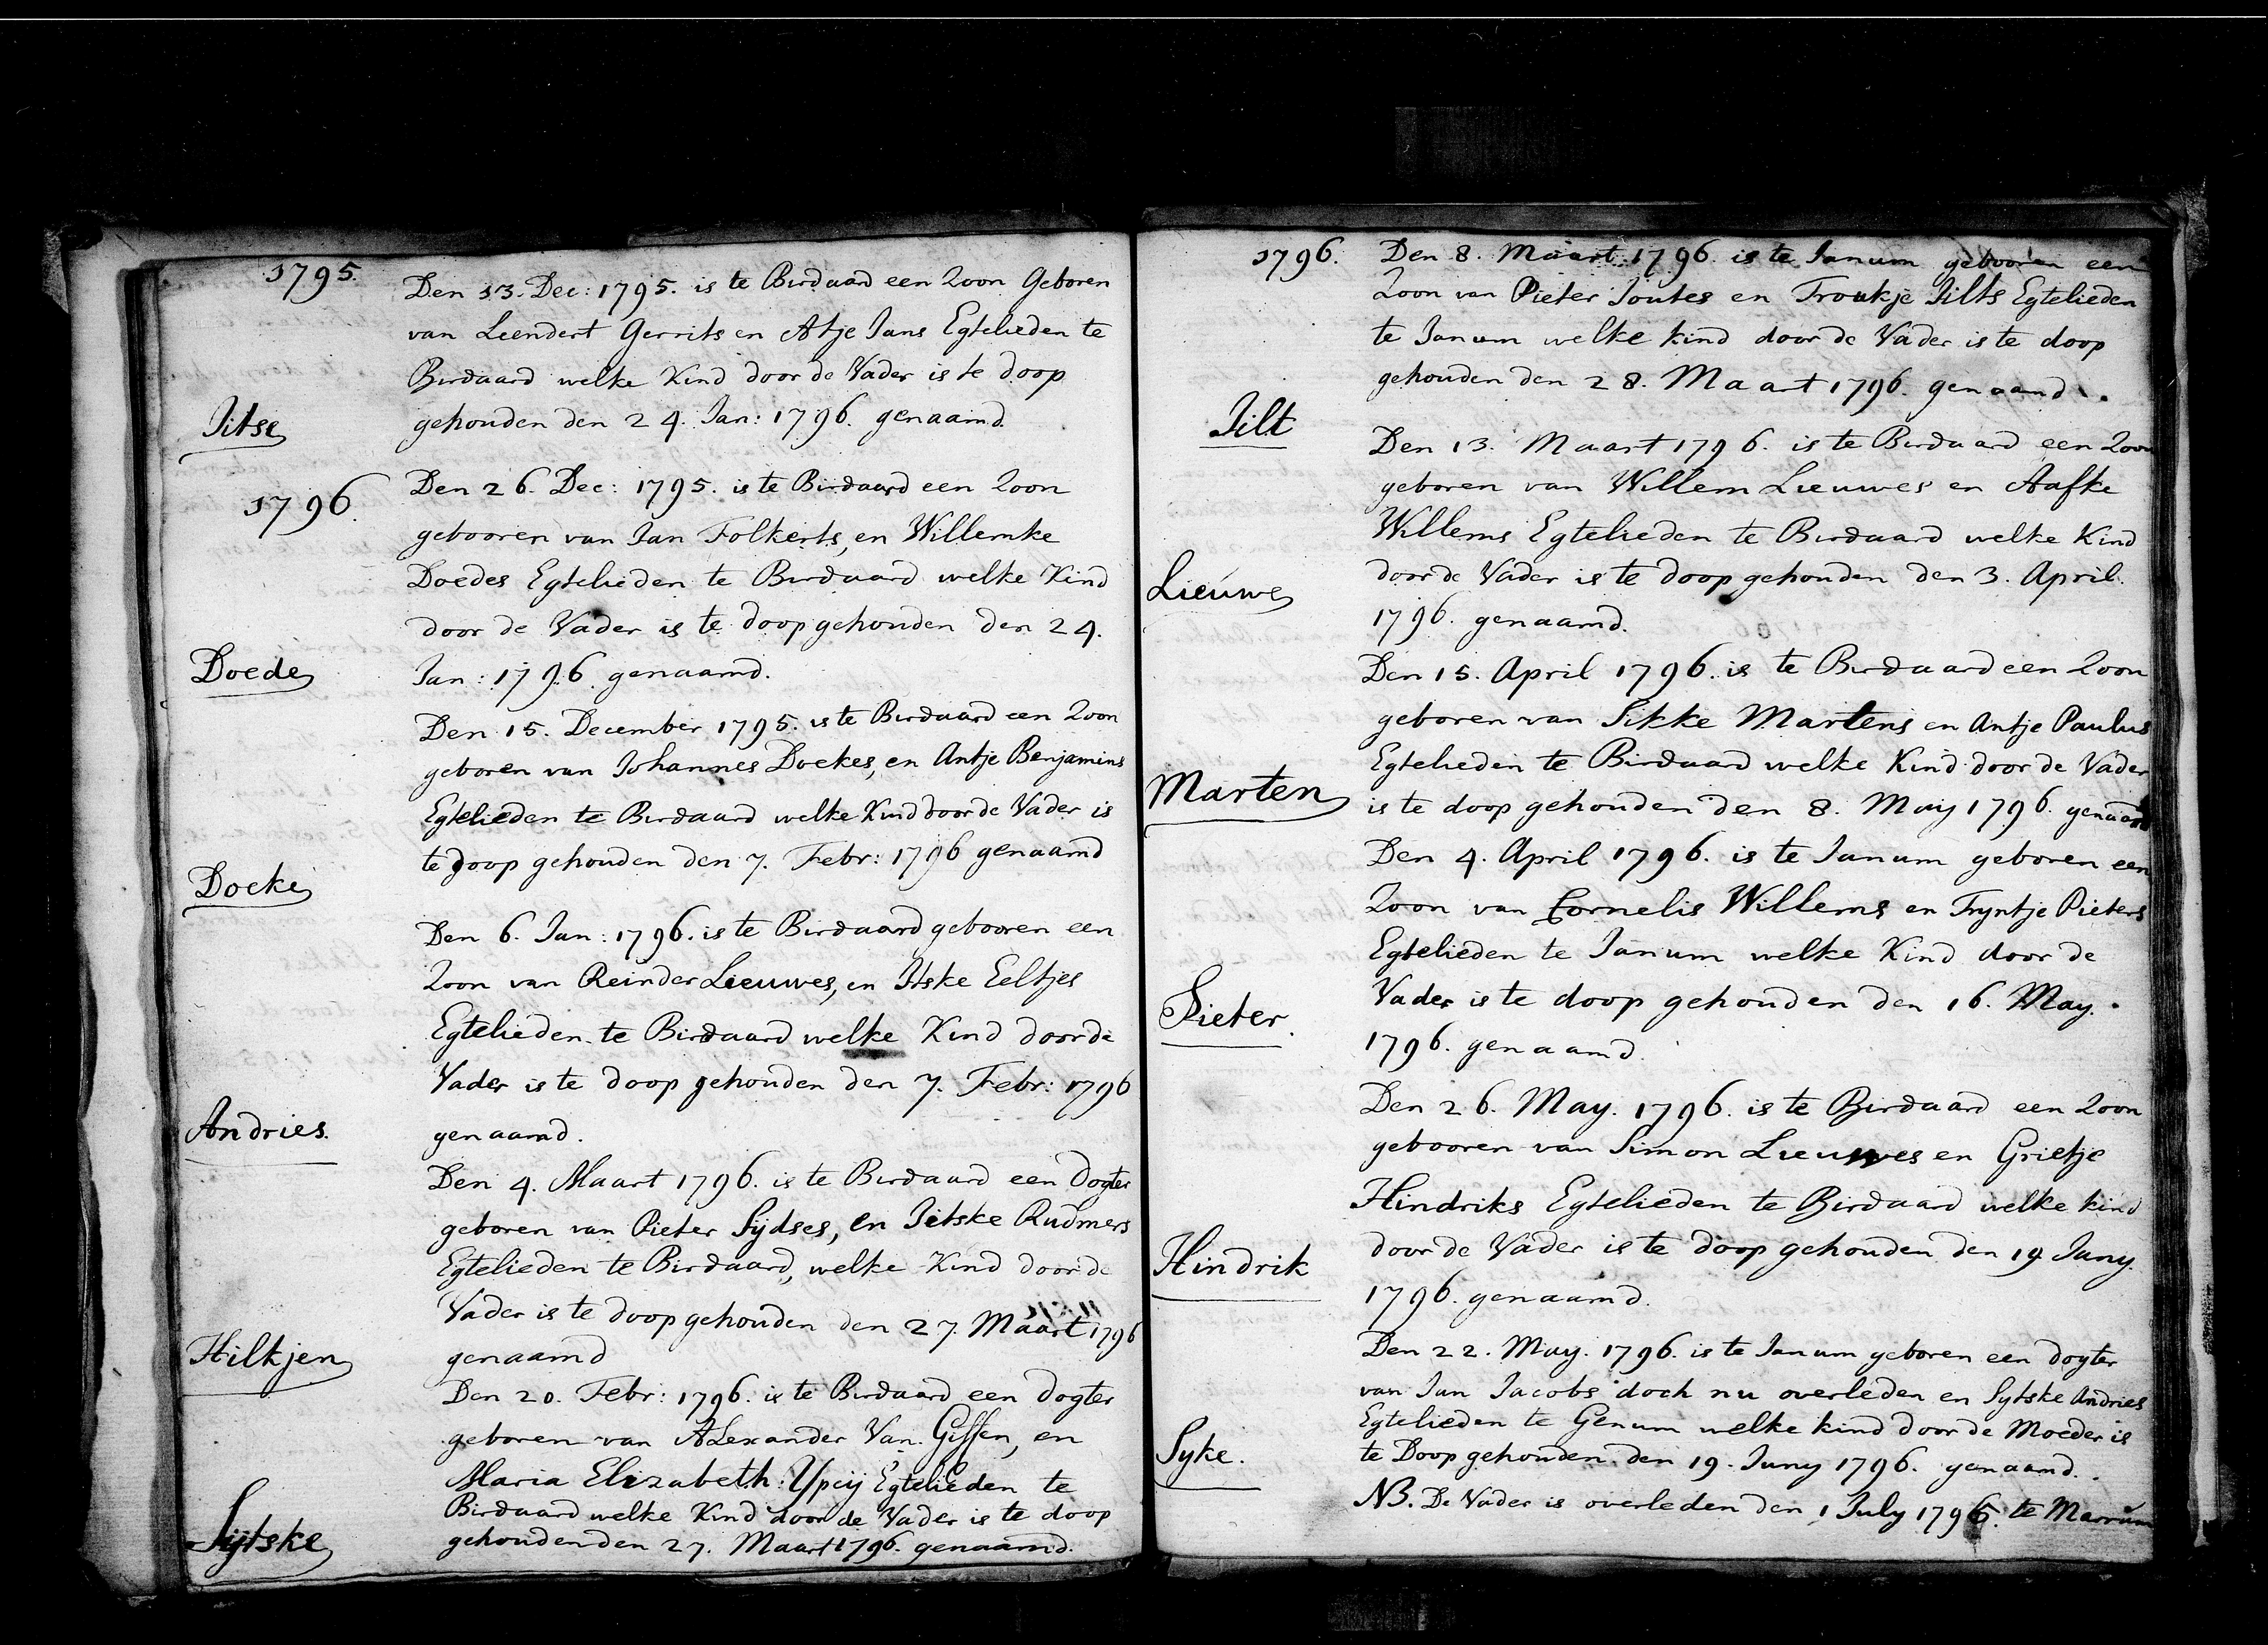 1795.
Den 13. Dec: 1795. is te Birdaard een Zoon Geboren
van Leendert Gerrits en Atje Jans Egtelieden te
Birdaard welke Kind door de Vader is te doop
gehouden den 24. Jan: 1796. genaamd.
Jitse
1796.
Den 26. Dec: 1795. is te Birdaard een Zoon
gebooren van Jan Folkerts, en Willemke
Doedes Egtelieden te Birdaard welke Kind
door de Vader is te doop gehouden den 24.
Jan: 1796. genaamd.
Doede
Den 15. December 1795. is te Birdaard een Zoon
geboren van Johannes Doekes, en Antje Benjamins
Egtelieden te Birdaard welke Kind door de Vader is
te doop gehouden den 7. Febr: 1796 genaamd
Doeke
Den 6. Jan: 1796. is te Birdaard gebooren een
Zoon van Reinder Lieuwes, en Itske Eeltjes
Egtelieden te Birdaard welke Kind door de
Vader is te doop gehouden den 7. Febr: 1796
genaamd.
Andries.
Den 4. Maart 1796. is te Birdaard een dogter
geboren van Pieter Sydses, en Jitske Rudmers
Egtelieden te Birdaard, welke Kind door de
Vader is te doop gehouden den 27. Maart 1796
genaamd
Hiltjen
Den 20. Febr: 1796. is te Birdaard een dogter
geboren van Alexander Van Giffen, en
Maria Elizabeth Ypeij Egtelieden te
Birdaard welke Kind door de Vader is te doop
gehouden den 27. Maart 1796. genaamd.
Sijtske
1796.
Den 8. Maart 1796. is te Janum gebooren een
Zoon van Pieter Joutes en Troukje Jilts Egtelieden
te Janum welke kind door de Vader is te doop
gehouden den 28. Maart 1796. genaamd.
Jilt
Den 13. Maart 1796. is te Birdaard een Zoon
geboren van Willem Lieuwes en Aafke
Willems Egtelieden te Birdaard welke Kind
door de Vader is te doop gehouden den 3. April.
1796. genaamd.
Lieuwe
Den 15. April 1796. is te Birdaard een Zoon
geboren van Sikke Martens en Antje Paulus
Egtelieden te Birdaard welke Kind door de Vader
is te doop gehouden den 8. May 1796. genaamd
Marten
Den 4. April 1796. is te Janum geboren een
Zoon van Cornelis Willems en Tryntje Pieters
Egtelieden te Janum welke Kind door de
Vader is te doop gehouden den 16. May.
1796. genaamd.
Pieter.
Den 26. May. 1796. is te Birdaard een Zoon
gebooren van Simon Lieuwes en Grietje
Hindriks Egtelieden te Birdaard welke kind
door de Vader is te doop gehouden den 19 Juny.
1796. genaamd.
Hindrik
Den 22. May. 1796. is te Janum geboren een dogter
van Jan Jacobs doch nu overleden en Sytske Andries
Egtelieden te Genum welke kind door de Moeder is
te Doop gehouden den 19. Juny 1796. genaamd.
Syke.
NB. De Vader is overleden den 1 July 1796. te Marrum